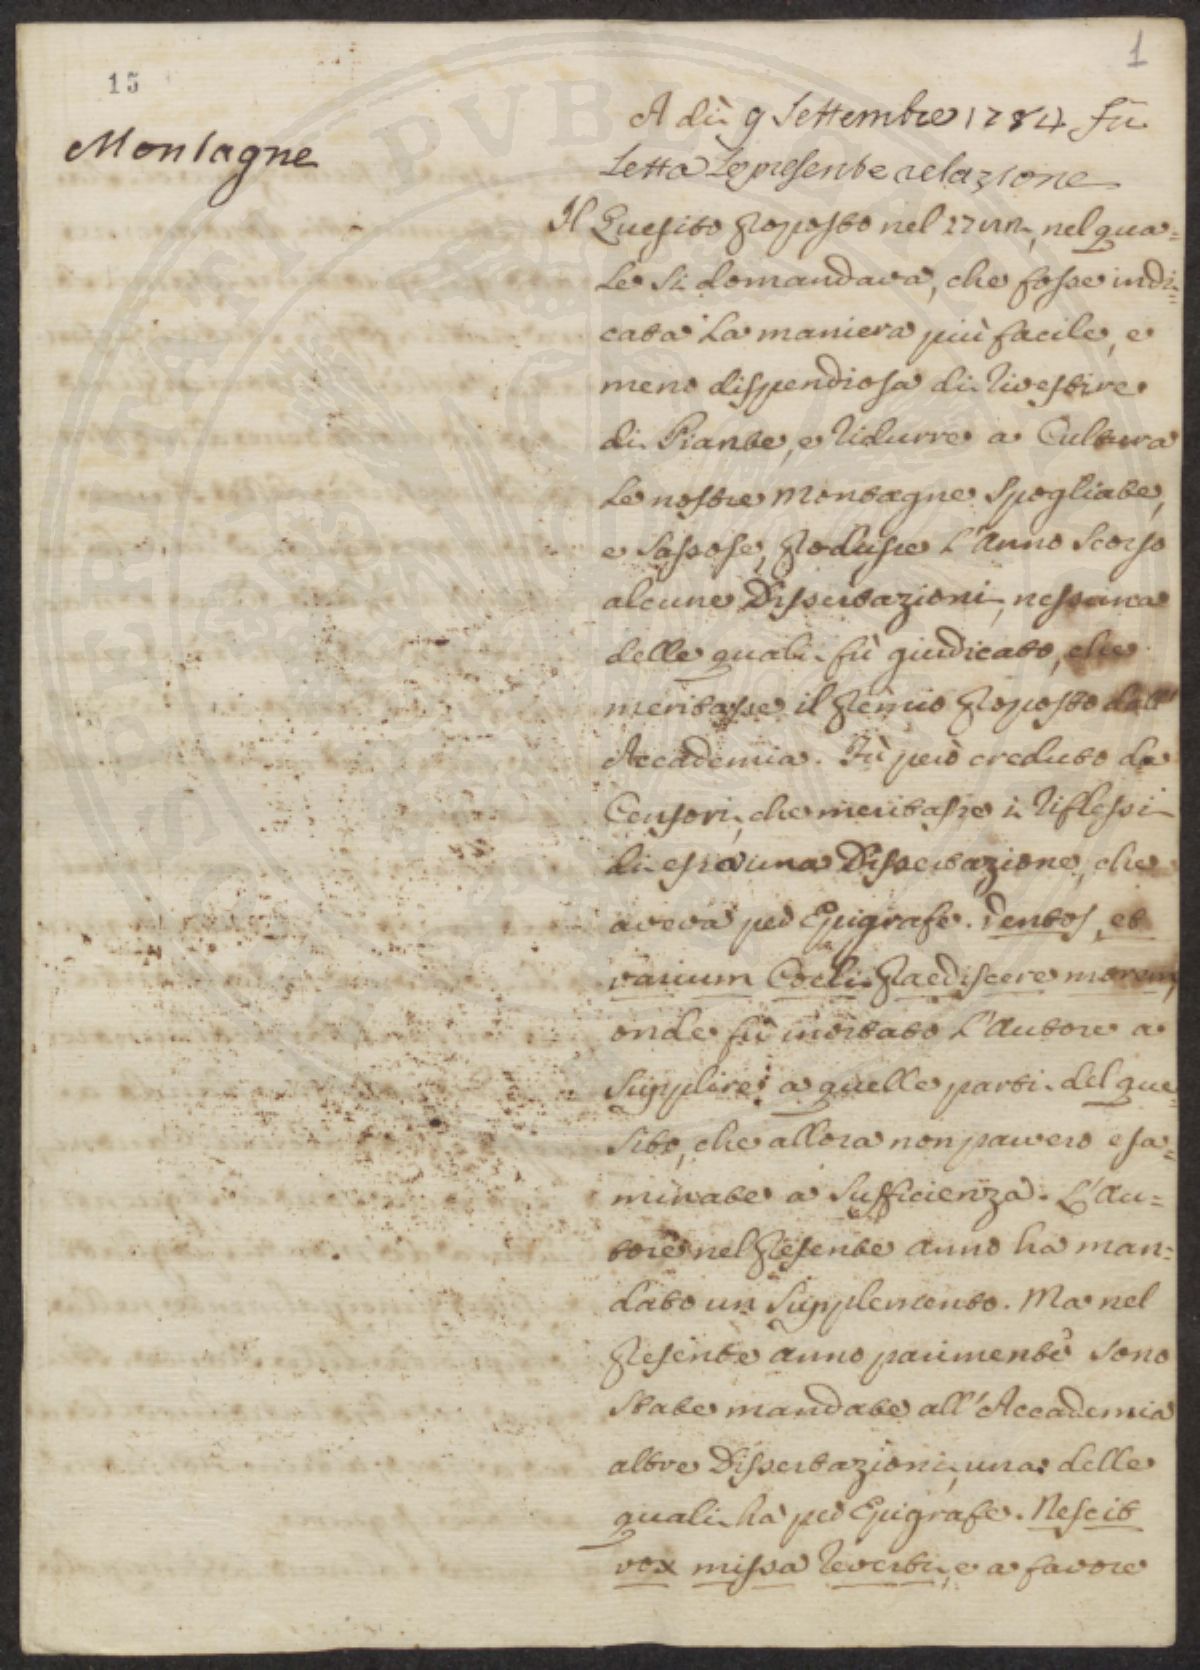 1
15
Montagne
A dì 9 Settembre 1784 fù
Letta La presente relazione
Il Quesito Proposto nel nel qua=
Le si domandava, che fosse indi=
cata La maniera più facile, e
meno dispendiosa di Rivestire
di Piante, e Ridurre a Cultura
Le nostre Montagne Spogliate,
e Sassose, Produsse L'Anno Scorso
alcune Dissertazioni, nessuna
delle quali fù giudicato, che
meritasse il Premio Proposto dall'
Accademia. Fù però creduto da
Censori, che meritasse i Riflessi
di essa una Dissertazione, che
aveva per Epigrafe. Ventos, et
varium Coeli Praediscere morem,
onde fù inortato L'Autore a
Supplire a quelle parti del que=
sito, che allora non parvero esa=
minate a Sufficienza. L'Au=
tore nel Presente anno ha man=
dato un Supplemento. Ma nel
Presente anno parimente Sono
State mandate all'Accademia
altre Dissertazioni, una delle
quali ha per Epigrafe. Nescit
vox missa Reverti, e a favore